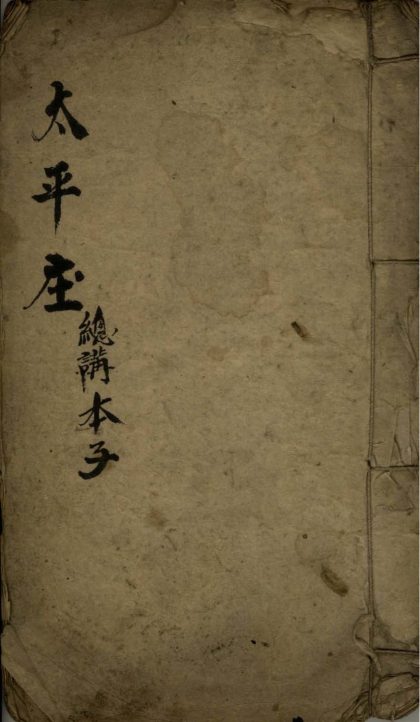 太平庄
總講本子